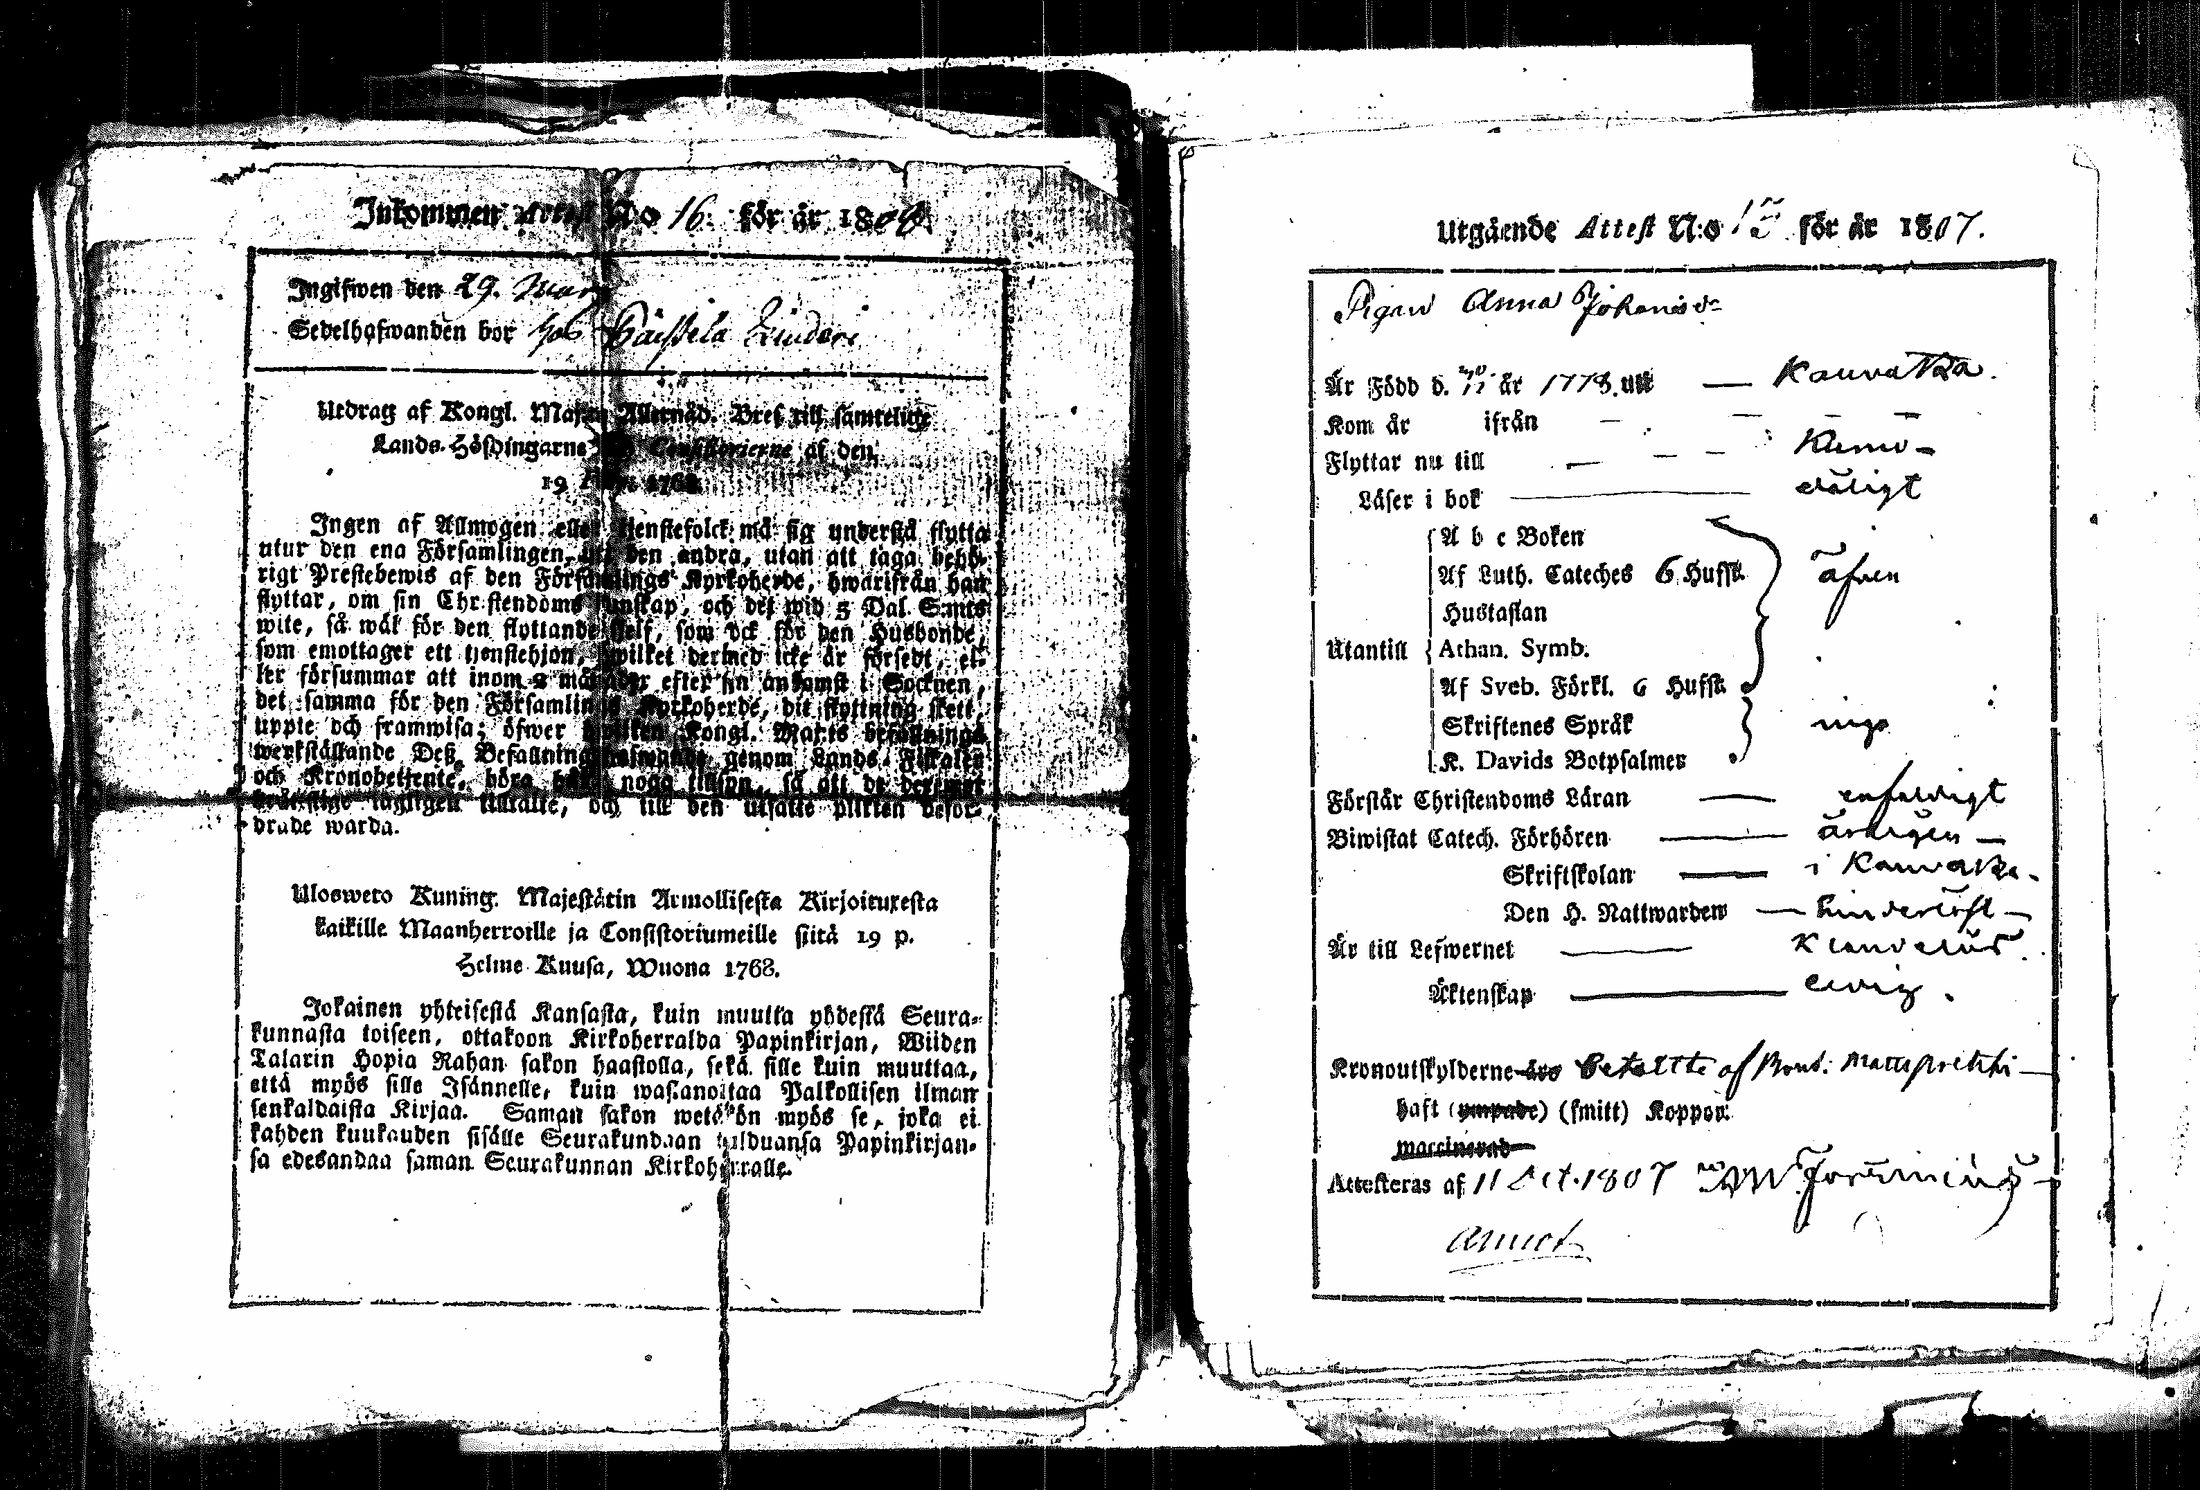 Inkommen Attest No 16. för år 1808.
Ingifwen den 29. Mars
Sedelhafwanden bor hos
Utdrag af Kongl. Maj:ts Allernåd. Bref till samtelige
Lands-Höfdingarne Consistorierne af den
19 1768.
Ingen af Allmogen eller tjenstefolck må sig understå flytta
utur den ena Församlingen, uti den andra, utan att taga behö-
rigt Prestebewis af den Församlings Kyrkoherde, hwarifrån han
flyttar, om sin Christendoms kunskap, och det wid 5 Dal. S:mts
wite, så wäl för den flyttande sielf, som ock för den Husbonde,
som emottager ett tjenstehjon, hwilket dermed icke är försedt, el-
ler försummar att inom 2 månader efter sin ankomst i Socknen,
det samma för den Församlings Kyrkoherde, dit flyttning skett,
uppte och framwisa; öfwer hwilken Kongl. Maj:ts befallnings
werkställande Deß Befallningshafwande genom Lands-Fiskaler
och Kronobetjente, böra hafwa noga tillsyn, så att de deremot
bråtslige lagligen tilltalte, och till den utsatte plikten befor-
drade warda.
Ulosweto Kuning. Majestätin Armollisesta Kirjoituxesta
kaikille Maanherroille ja Consistoriumeille siitä 19 p.
Helme Kuusa, Wuona 1768.
Jokainen yhteisestä Kansasta, kuin muutta yhdestä Seura-
kunnasta toiseen, ottakoon Kirkoherralda Papinkirjan, Wiiden
Talarin Hopia Rahan sakon haastolla, sekä sille kuin muuttaa,
että myös sille Isännelle, kuin wastanottaa Palkollisen ilman
senkaldaista Kirjaa. Saman sakon wetäkön myös se, joka ei
kahden kuukauden sisälle Seurakundaan tulduansa Papinkirjan-
sa edesandaa saman Seurakunnan Kirkoherralle.
Utgående Attest N:o för år 1807.
Pigan Anna Johansd:r
Är Född d. år 1778. uti — Kauvatsa.
Kom år ifrån — —
Flyttar nu till — — — Kumo —
Läser i bok — dåligt
A b c Boken
Af Luth. Cateches 6 Hufst. äfven
Hustaflan
Utantill Athan. Symb.
Af Sveb. Förkl. 6 Hufst.
Skriftenes Språk inga
K. Davids Botpsalmer
Förstår Christendoms Läran — enfaldigt
Biwistat Catech. Förhören — årligen —
Skriftskolan — i Kauvatsa.
Den H. Nattwarden — hinderlöst —
Är till Lefwernet — klanderlös.
Äktenskap — ledig.
Kronoutskylderne äro betalte af Bond.
haft (ympade) (smitt) Koppor.
waccinerad
Attesteras af 11 Oct. 1807